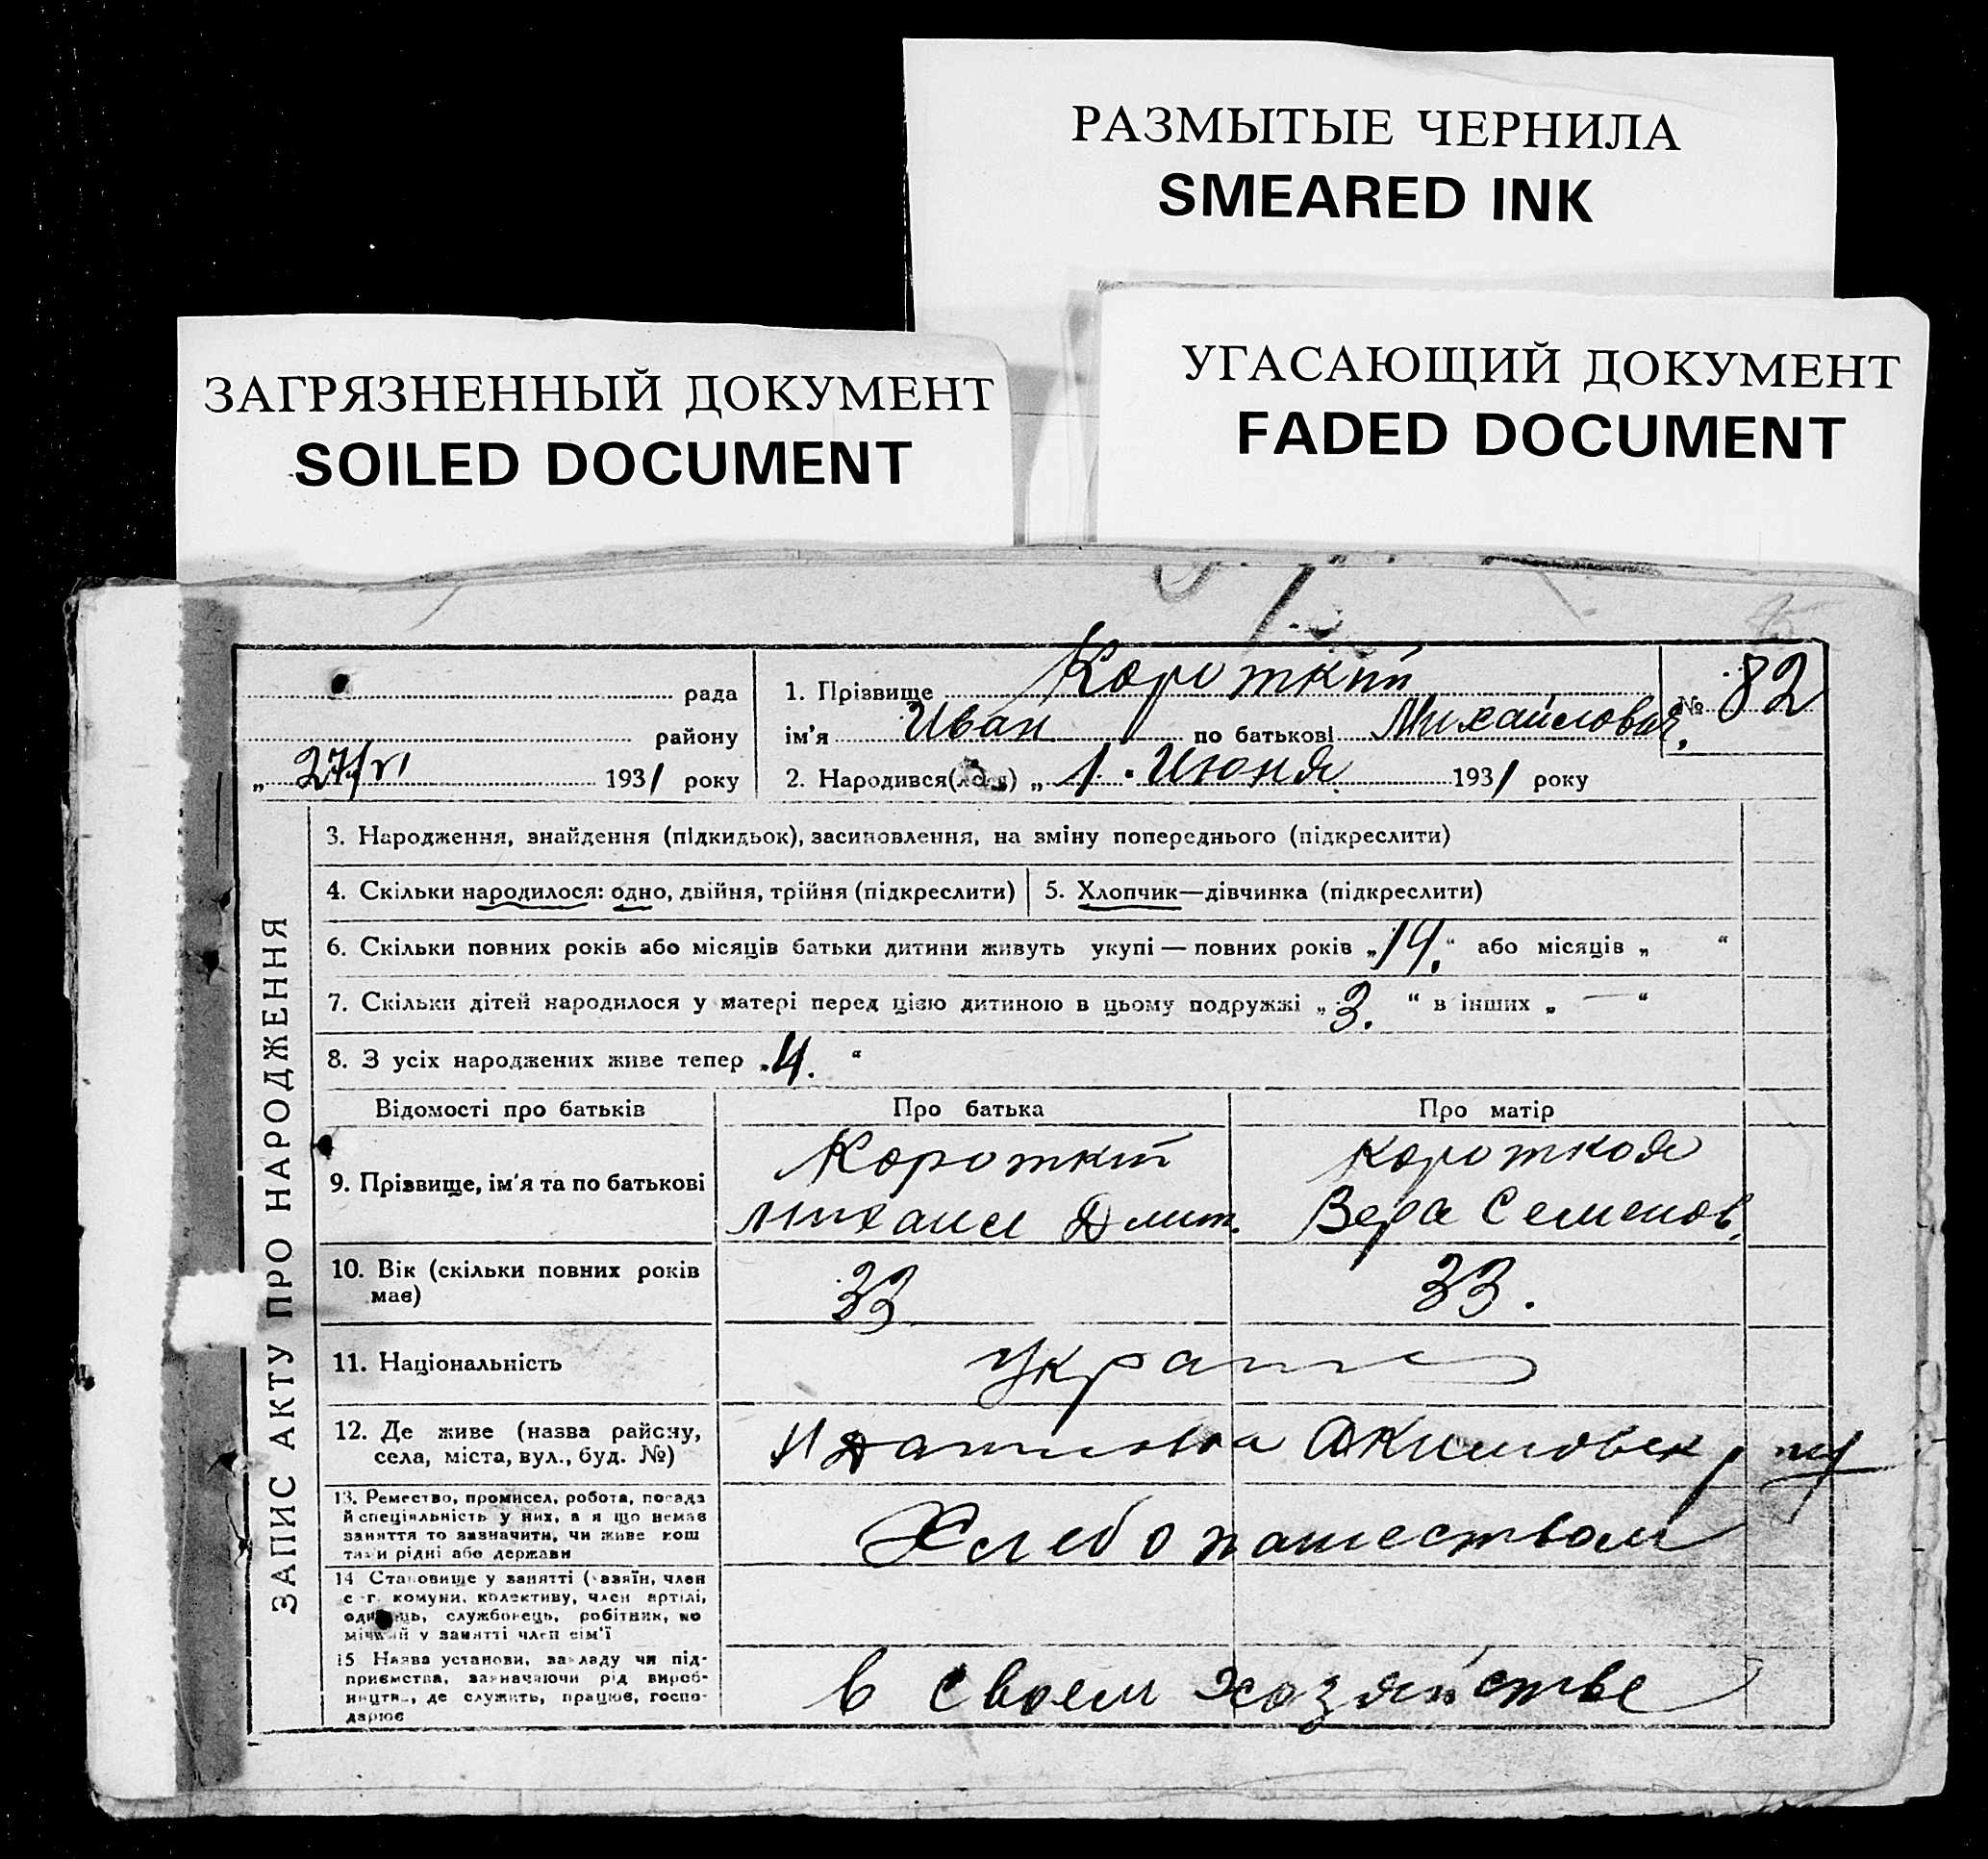 РАЗМЫТЫЕ ЧЕРНИЛА
SMEARED INK
ЗАГРЯЗНЕННЫЙ ДОКУМЕНТ
SOILED DOCUMENT
УГАСАЮЩИЙ ДОКУМЕНТ
FADED DOCUMENT
рада
району
„ 27/VI 1931 року
1. Прізвище Короткий
ім'я Иван по батькові Михайлович.
№ 82
2. Народився( ) „ 1. Июня 1931 року
ЗАПИС АКТУ ПРО НАРОДЖЕННЯ
3. Народження, знайдення (підкидьок), засиновлення, на зміну попереднього (підкреслити)
4. Скільки народилося: одно, двійня, трійня (підкреслити) 5. Хлопчик—дівчинка (підкреслити)
6. Скільки повних років або місяців батьки дитини живуть укупі — повних років „14.“ або місяців „ “
7. Скільки дітей народилося у матері перед цією дитиною в цьому подружжі „3. “ в інших „ — “
8. З усіх народжених живе тепер „4. “
Відомості про батьків Про батька Про матір
9. Прізвище, ім'я та по батькові
Короткий
Михаил Дмит.
Короткая
Вера Семенов.
10. Вік (скільки повних років
має)
33 33.
11. Національність Украин
12. Де живе (назва району,
села, міста, вул., буд. №)
Акимовск р
13. Ремество, промисел, робота, посада
й спеціяльність у них, а я що немає
заняття то зазначити, чи живе кош
тами рідні або держави
Хлебопашеством
14 Становище у занятті (хазяїн, член
с г. комуни, колективу, член артілі,
одинець, службовець, робітник, по
мічний у занятті член сім'ї
15 Назва установи, закладу чи під-
приємства, зазначаючи рід вироб-
ництва, де служить, працює, госпо-
дарює
в своем хозяйстве